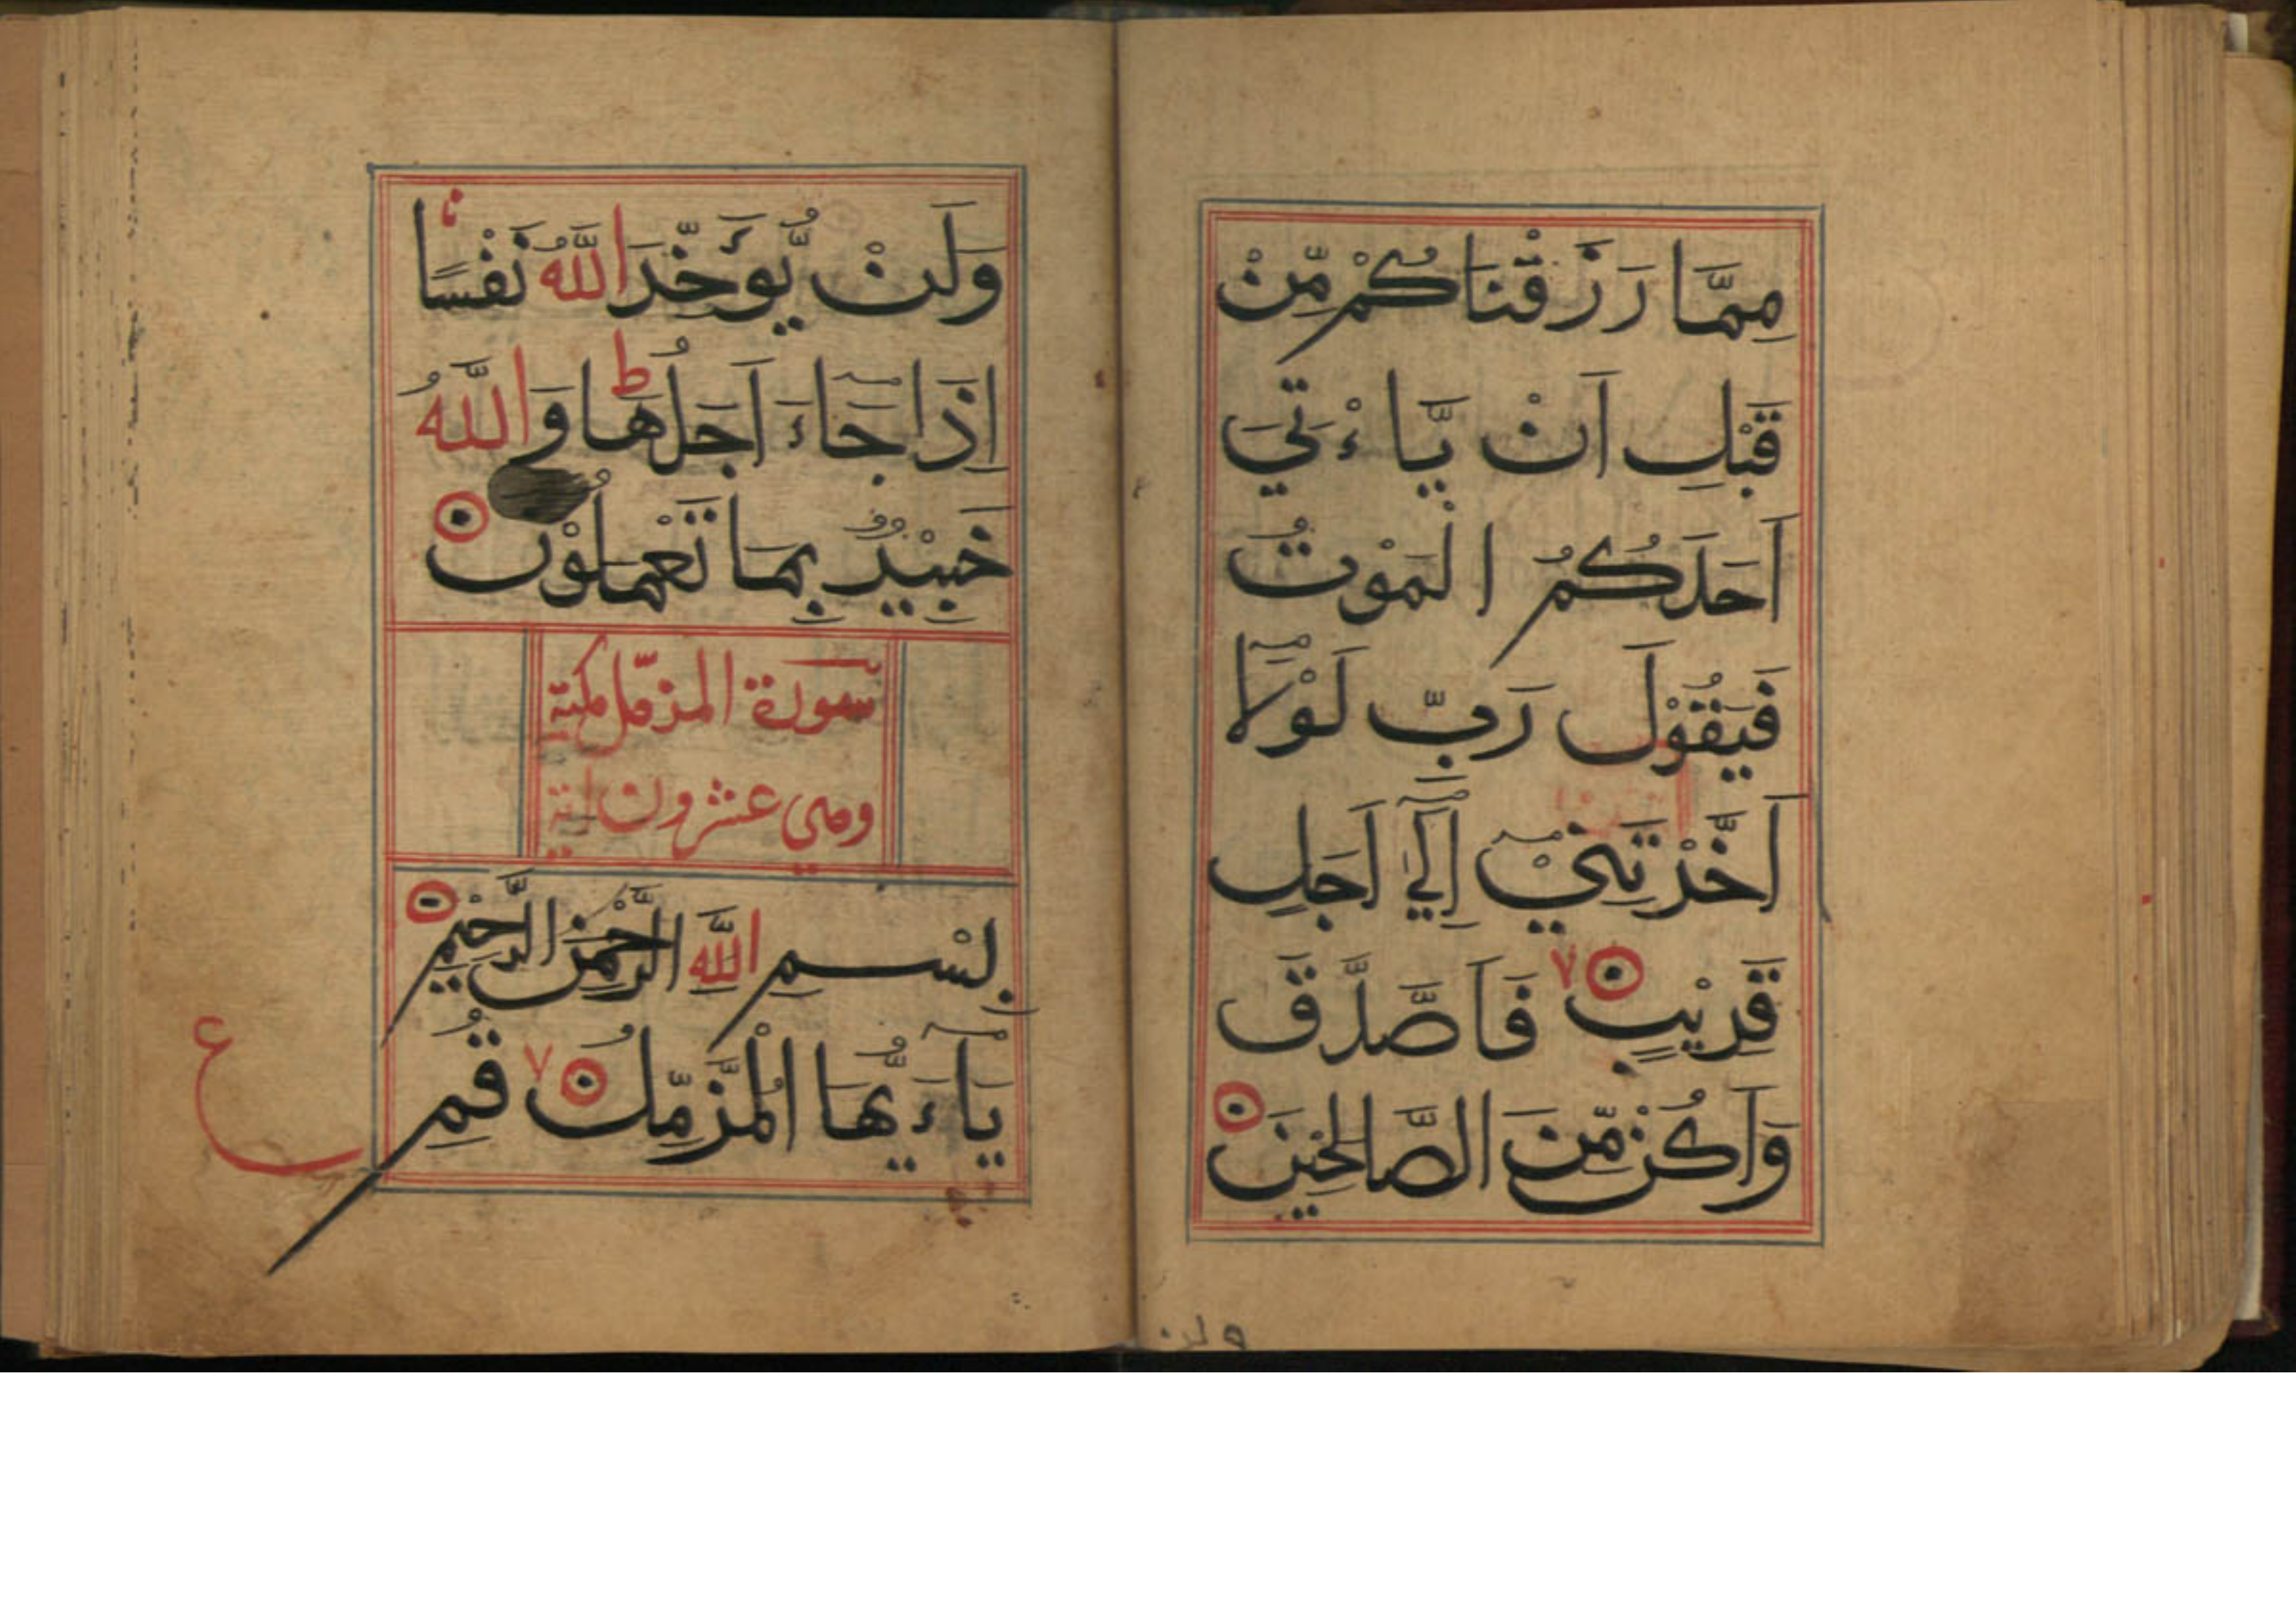 مِمَّا رَزَقْنَاكُمْ مِّنْ
قَبْلِ اَنْ يَّاءْتِيَ
اَحَدَكُمُ الْمَوْتُ
فَيَقُوْلَ رَبِّ لَوْلَآ
اَخَّرْتَنِيْٓ اِلٰٓي اَجَلٍ
قَرِيْبٍ ٧ فَاَصَّدَّقَ
وَاَكُنْ مِّنَ الصَّالِحِيْنَ
ولن
وَلَنْ يُّؤَخِّرَ اللّٰهُ نَفْسًا
اِذَا جَآءَ اَجَلُهَا ط وَاللّٰهُ
خَبِيْرٌ بِمَا تَعْمَلُوْنَ
سورة المزمّل مكية
وهي عشرون اية
بِسْمِ اللّٰهِ الرَّحْمٰنِ الرَّحِيْمِ
يَآءَيُّهَا الْمُزَّمِّلُ ٧ قُمِ
ع